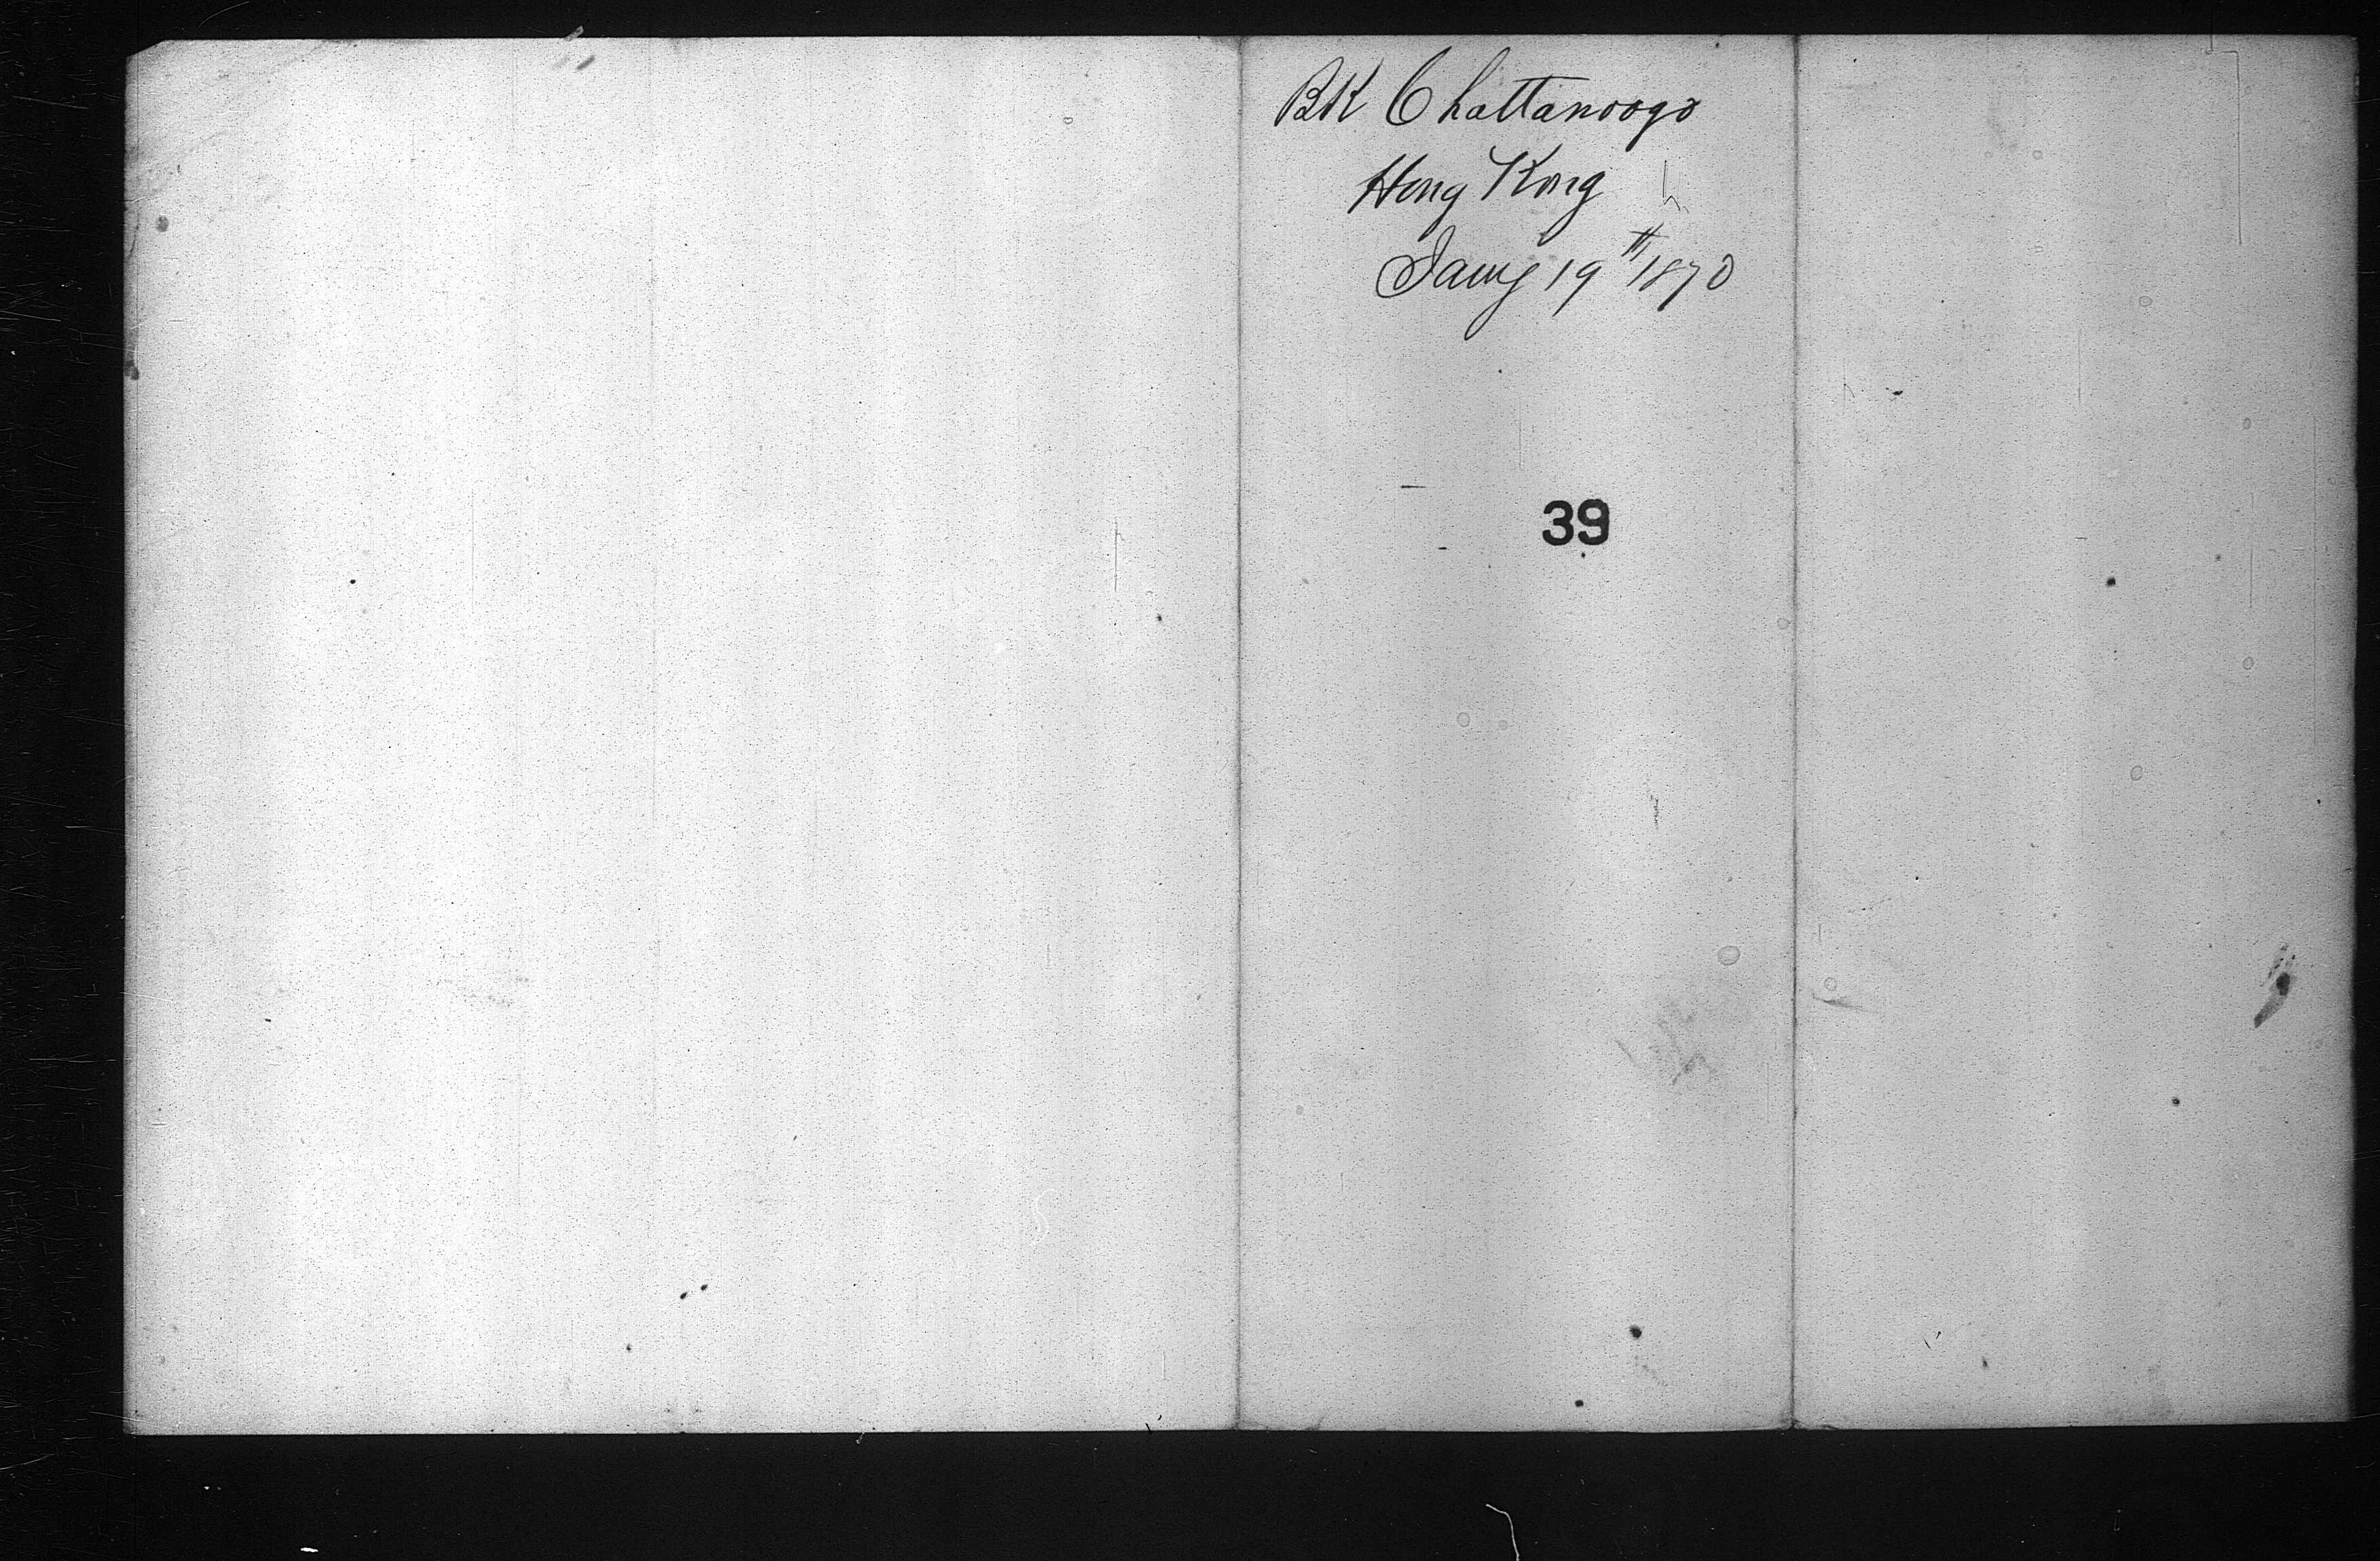 BK Chattanooga
Hong Kong
Jany 19th 1870
39